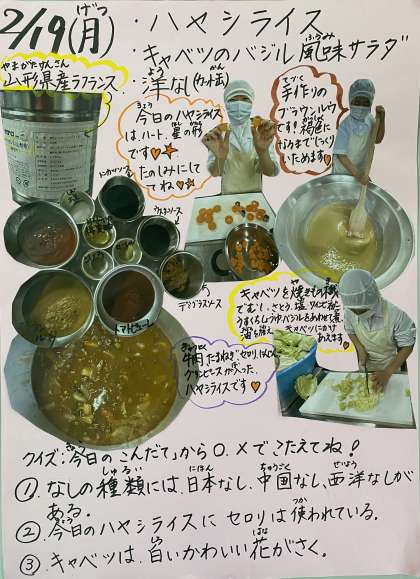 2/19(月)
げつ
・ハヤシライス
・キャベツのバジル風味サラダ
ふうみ
・洋なし(カット缶)
よう
やまがたけんさん
山形県産ラフランス
きょう
今日のハヤシライス
は、ハート、星の形
です♡★
たのしみにして
てね♡♡
てづく
手作りの
ブラウンルウ
です!褐色に
なるまでじっくり
いためます。
トンカツソース
ウスターソース
デミグラスソース
ルウ
トマトピューレ
ぎゅうにく
牛肉、たまねぎ、セロリ、にんじん
グリンピースが入った
ハヤシライスです♡
キャベツを
でむし、さとう、塩、りんご酢に
うすくちしょうゆ、バジルをあわせて煮
キャベツにかけ
あえます。
クイズ:今日の「こんだて」から○、×でこたえてね!
きょう
しゅるい にほん ちゅうごく せいよう
①なしの種類には、日本なし、中国なし、西洋なしが
ある。
きょう つか
②今日のハヤシライスに セロリは 使われている。
しろ はな
③キャベツは、白いかわいい花がさく。